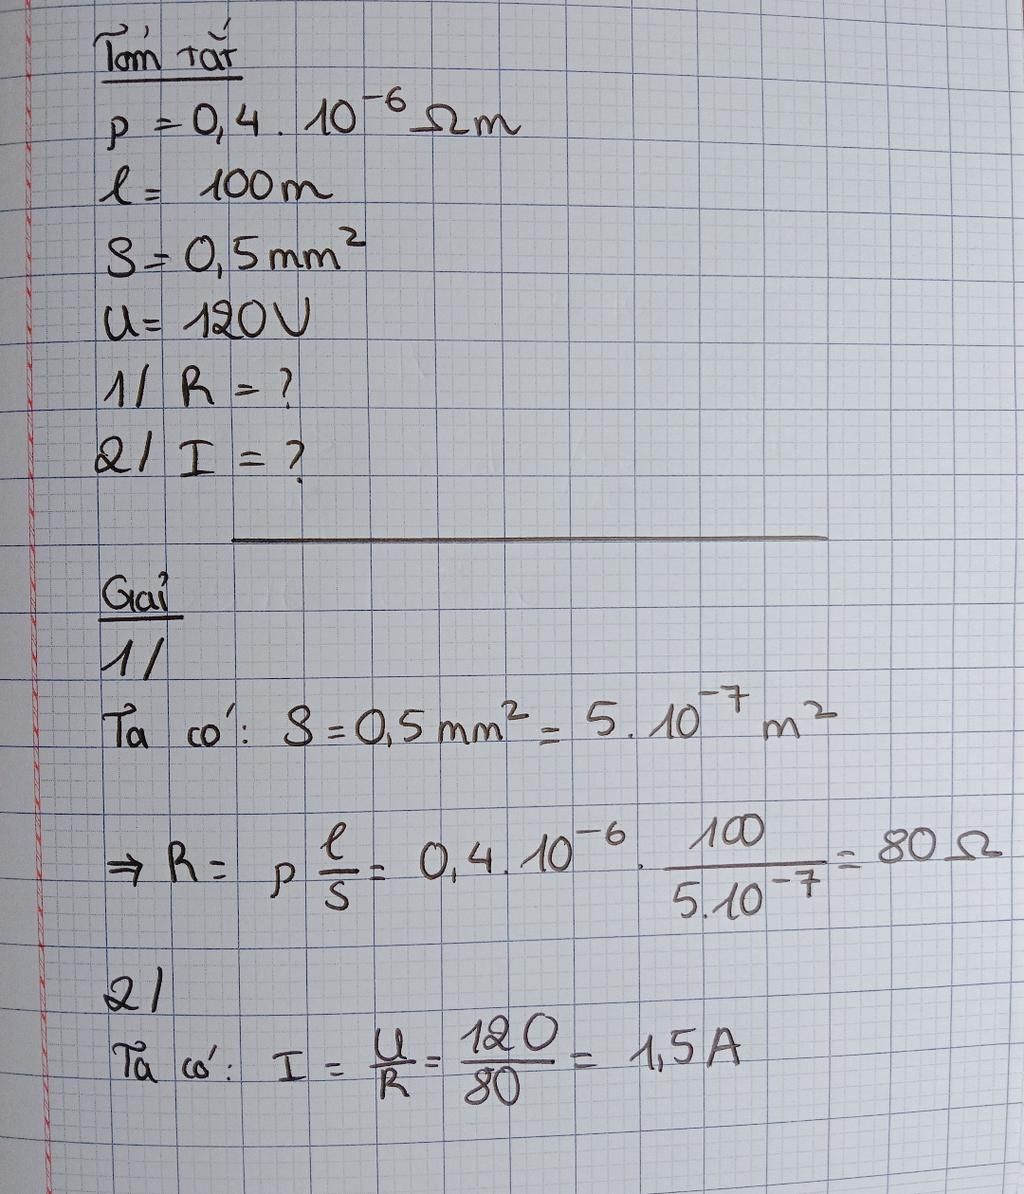 Tóm tắt
ρ = 0,4 . 10⁻⁶ Ωm
l = 100m
S = 0,5mm²
U = 120V
1/ R = ?
2/ I = ?
Giải
1/
Ta có: S = 0,5 mm² = 5 . 10⁻⁷ m²
⇒ R = ρ l/S = 0,4 . 10⁻⁶ . 100/5.10⁻⁷ = 80 Ω
2/
Ta có: I = U/R = 120/80 = 1,5A